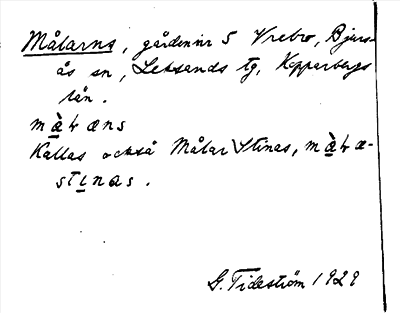 Målarns, gården nr 5 Vrebro, Bjurs-
ås sn, Leksands tg, Kopparbergs
län.
mằⱡæns
Kallas också Målar Stinas, mằⱡæ-
stɩnas.
G. Tideström 1929